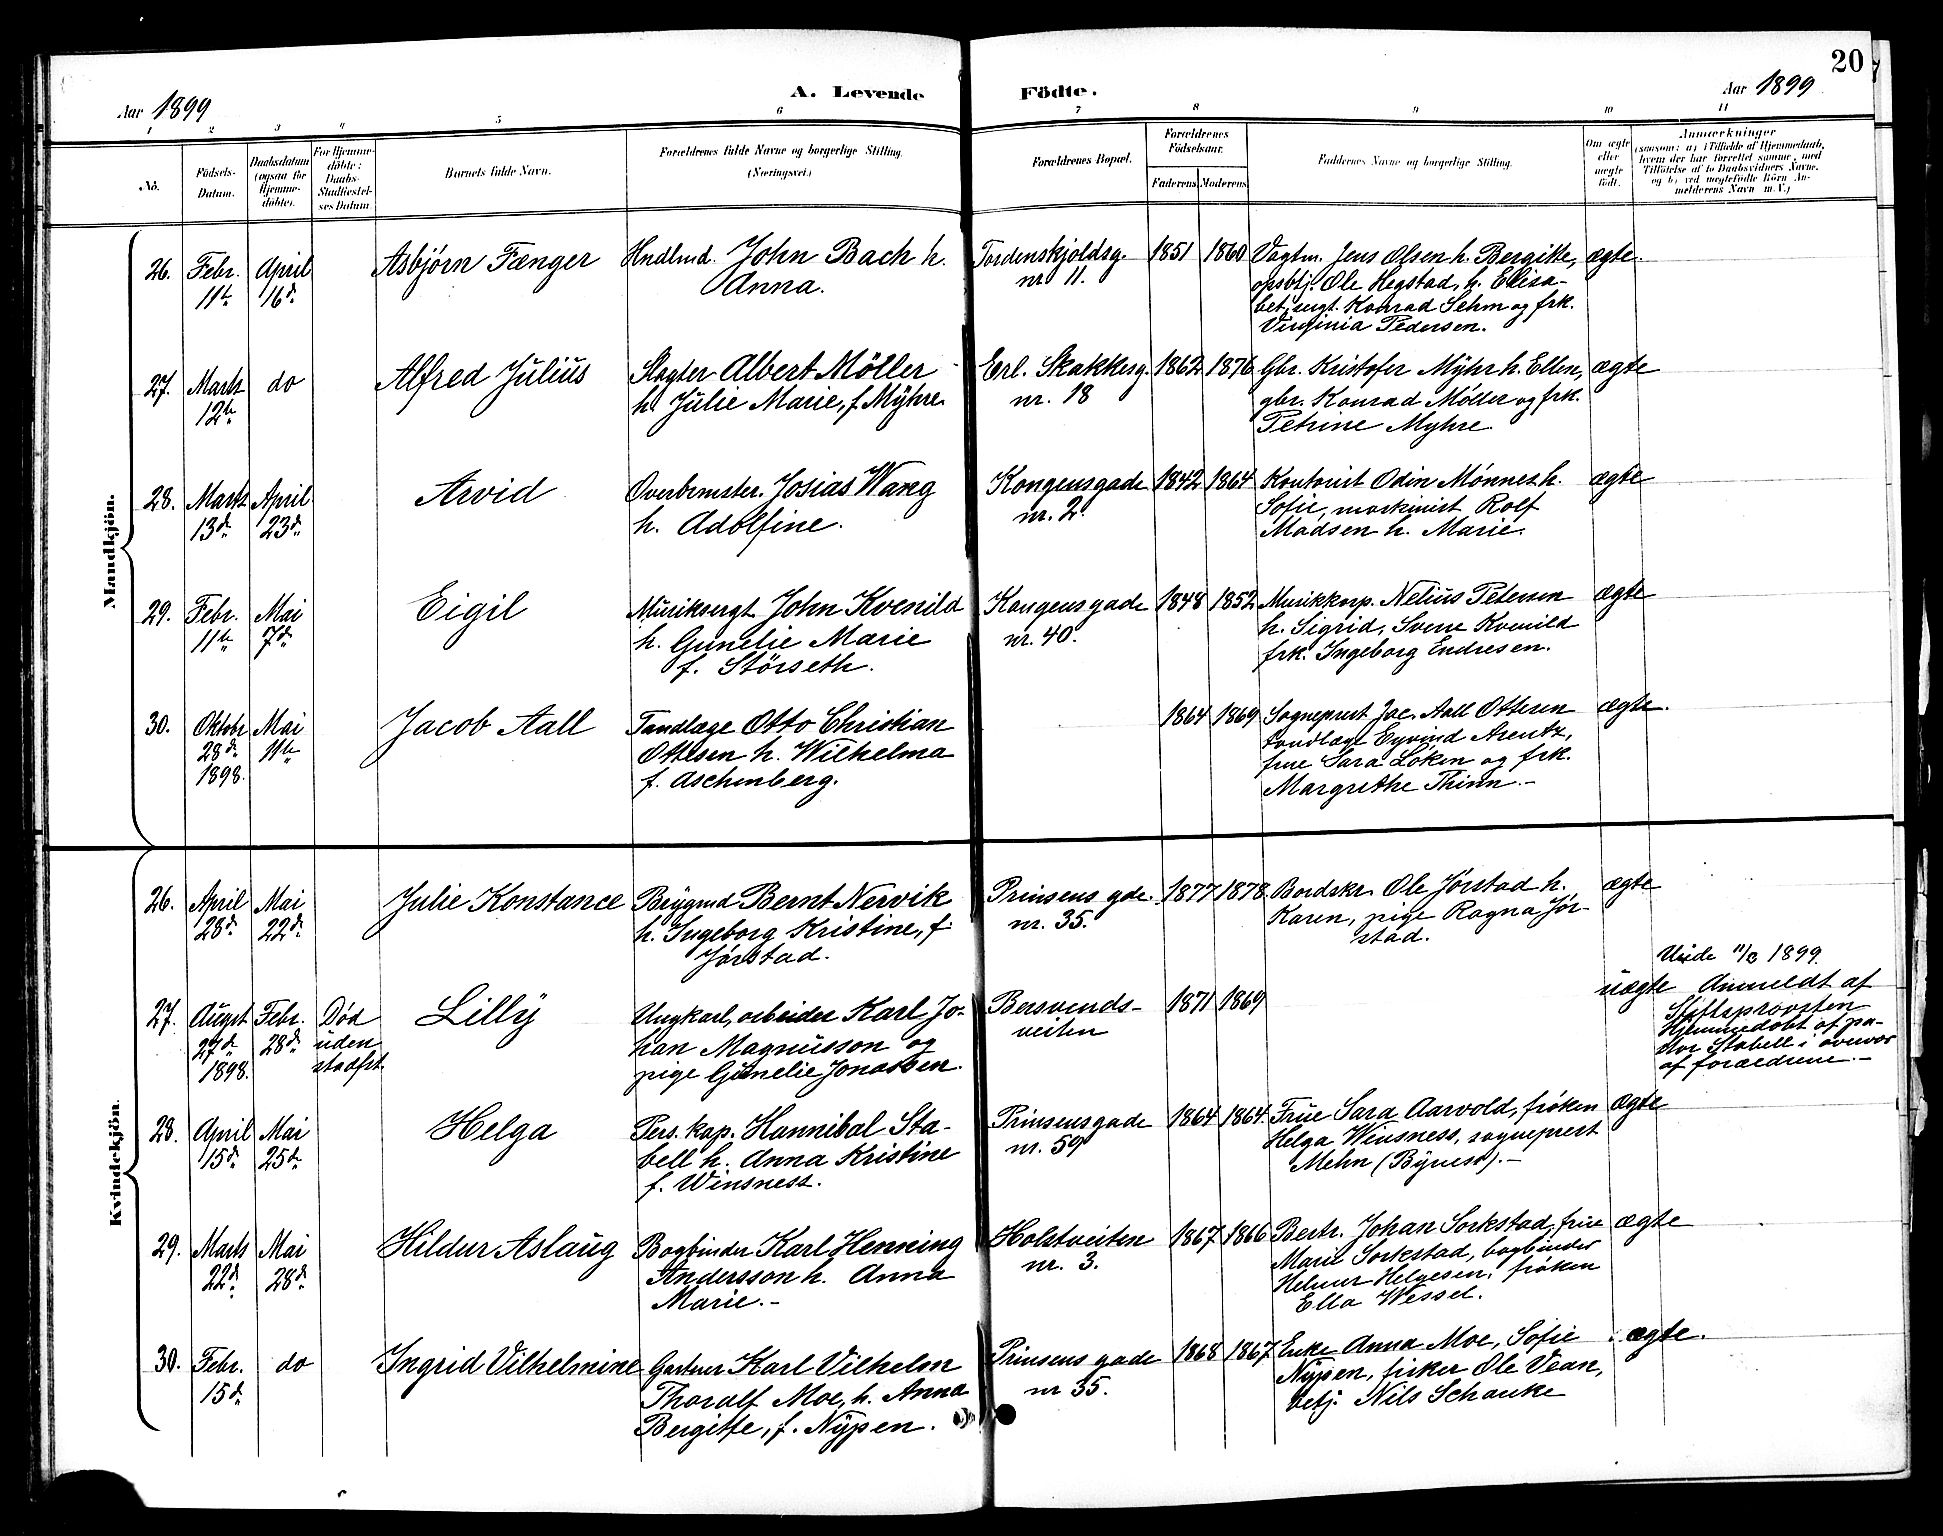 20
Aar 1899
A. Levende Födte.
Aar 1899
1 2 3 4 5 6 7 8 9 10 11
No.
Födsels-
Datum.
Daabsdatum
(ogsaa for
Hjemme-
döbte).
For Hjemme-
döbte:
Daabs-
Stadfæstel-
ses Datum
Barnets fulde Navn.
Forældrenes fulde Navne og borgerlige Stilling.
(Næringsvei.)
Forældrenes Bopæl.
Forældrenes
Födselsaar.
Faderens Moderens
Faddernes Navne og borgerlige Stilling.
Om ægte
eller
uægte
födt.
Anmærkninger
(saasom: a) i Tilfælde af Hjemmedaab,
hvem der har forrettet samme, med
Tilföielse af to Daabsvidners Navne,
og b) ved uægtefödte Börn An-
melderens Navn m. V.)
Mandkjön.
26.
Febr.
11te
April
16de
Asbjørn Fænger
Hndlmd. John Bach h.
Anna.
Tordenskjoldsg.
nr 11.
1851 1860
Vagtm. Jens Olsen h. Bergitte,
opsbtj. Ole Hegstad, h. Elisa-
bet, sergt. Konrad Sehm og frk.
Virginia Pedersen.
ægte.
27.
Marts
12te
do
Alfred Julius
Slagter Albert Möller
h. Julie Marie, f. Mÿhre.
Erl. Skakkesg.
nr. 18
1862 1876
Gbr. Kristofer Mÿhr h. Ellen,
gbr. Konrad Möller og frk.
Petrine Myhre.
ægte
28.
Marts
13de
April
23de
Arvid
Overbrmster. Josias Wang
h. Adolfine.
Kongensgade
nr. 2.
1842 1864
Kontorist Odin Mønnes h.
Sofie, maskinist Rolf
Madsen h. Marie.
ægte
29.
Febr.
11te
Mai
7de
Eigil
Musiksergt John Kvenild
h. Gunelie Marie
f. Störseth.
Kongens gade
nr. 40.
1848 1852
Musikkorp. Nelius Petersen
h. Sigrid, Sverre Kvenild
frk. Ingeborg Endresen.
ægte
30.
Oktobr
28de
1898.
Mai
11te
Jacob Aall
Tandlæge Otto Christian
Ottesen h. Wilhelma
f. Aschenberg.
1864 1869
Sogneprest Jac. Aall Ottesen
tandlæge Eyvind Arentz,
frue Sara Løken og frk.
Margrethe Thinn.-
ægte.
Kvindekjön.
26.
April
28de
Mai
22de
Julie Konstance
Brÿgmd Bernt Nervik
h. Ingeborg Kristine, f.
Jørstad.
Prinsens gde.
nr. 35.
1877 1878
Bordskr. Ole Jørstad h.
Karen, pige Ragna Jør-
stad.
ægte
27.
August
27de
1898.
Febr.
28de
Død
uden
stadfst.
Lillÿ
Ungkarl, arbeider Karl Jo-
han Magnusson og
pige Gunelie Jonassen.
Bersvends-
veiten
1871 1869
uægte
11/3 1899.
Anmeldt af
Stiftsprovsten
Hjemmedøbt af pa-
stor Stabell i overvær
af forældrene.-
28.
April
15de
Mai
25de
Helga
Pers. kap. Hannibal Sta-
bell h. Anna Kristine
f. Winsness.
Prinsensgade
nr. 59
1864 1864.
Frue Sara Aarvold, frøken
Helga Winsness, sogneprest
Mehn (Bÿness).-
ægte
29.
Marts
22de
Mai
28de
Hildur Aslaug
Bogbinder Karl Henning
Andersson h. Anna
Marie.-
Holstveiten
nr. 3.
1867 1866
Bestr. Johan Sorkstad, frue
Marie Sorkstad, bogbinder
Helmer Helgesen, frøken
Ella Wessel.
ægte
30.
Febr.
15de
do
Ingrid Vilhelmine
Gartner Karl Vilhelm
Thoralf Moe, h. Anna
Bergitte, f. Nÿpen.
Prinsens gade
nr 35.
1868 1867
Enke Anna Moe, Sofie
Nÿpen, fisker Ole Vean,
betj. Nils Schanke
ægte.